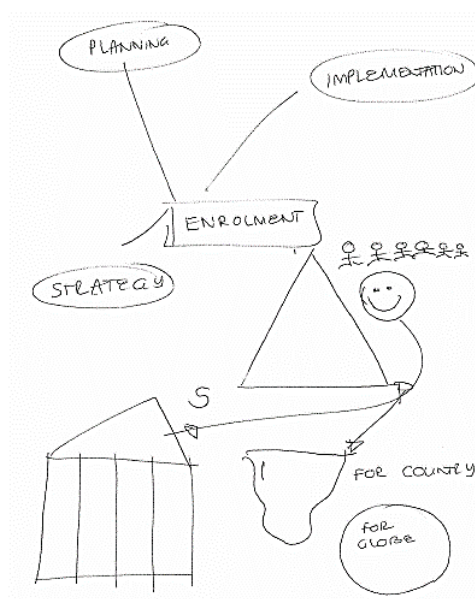 PLANNING
IMPLEMENTATION
ENROLMENT
STRATEGY
S
FOR COUNTRY
FOR
GLOBE